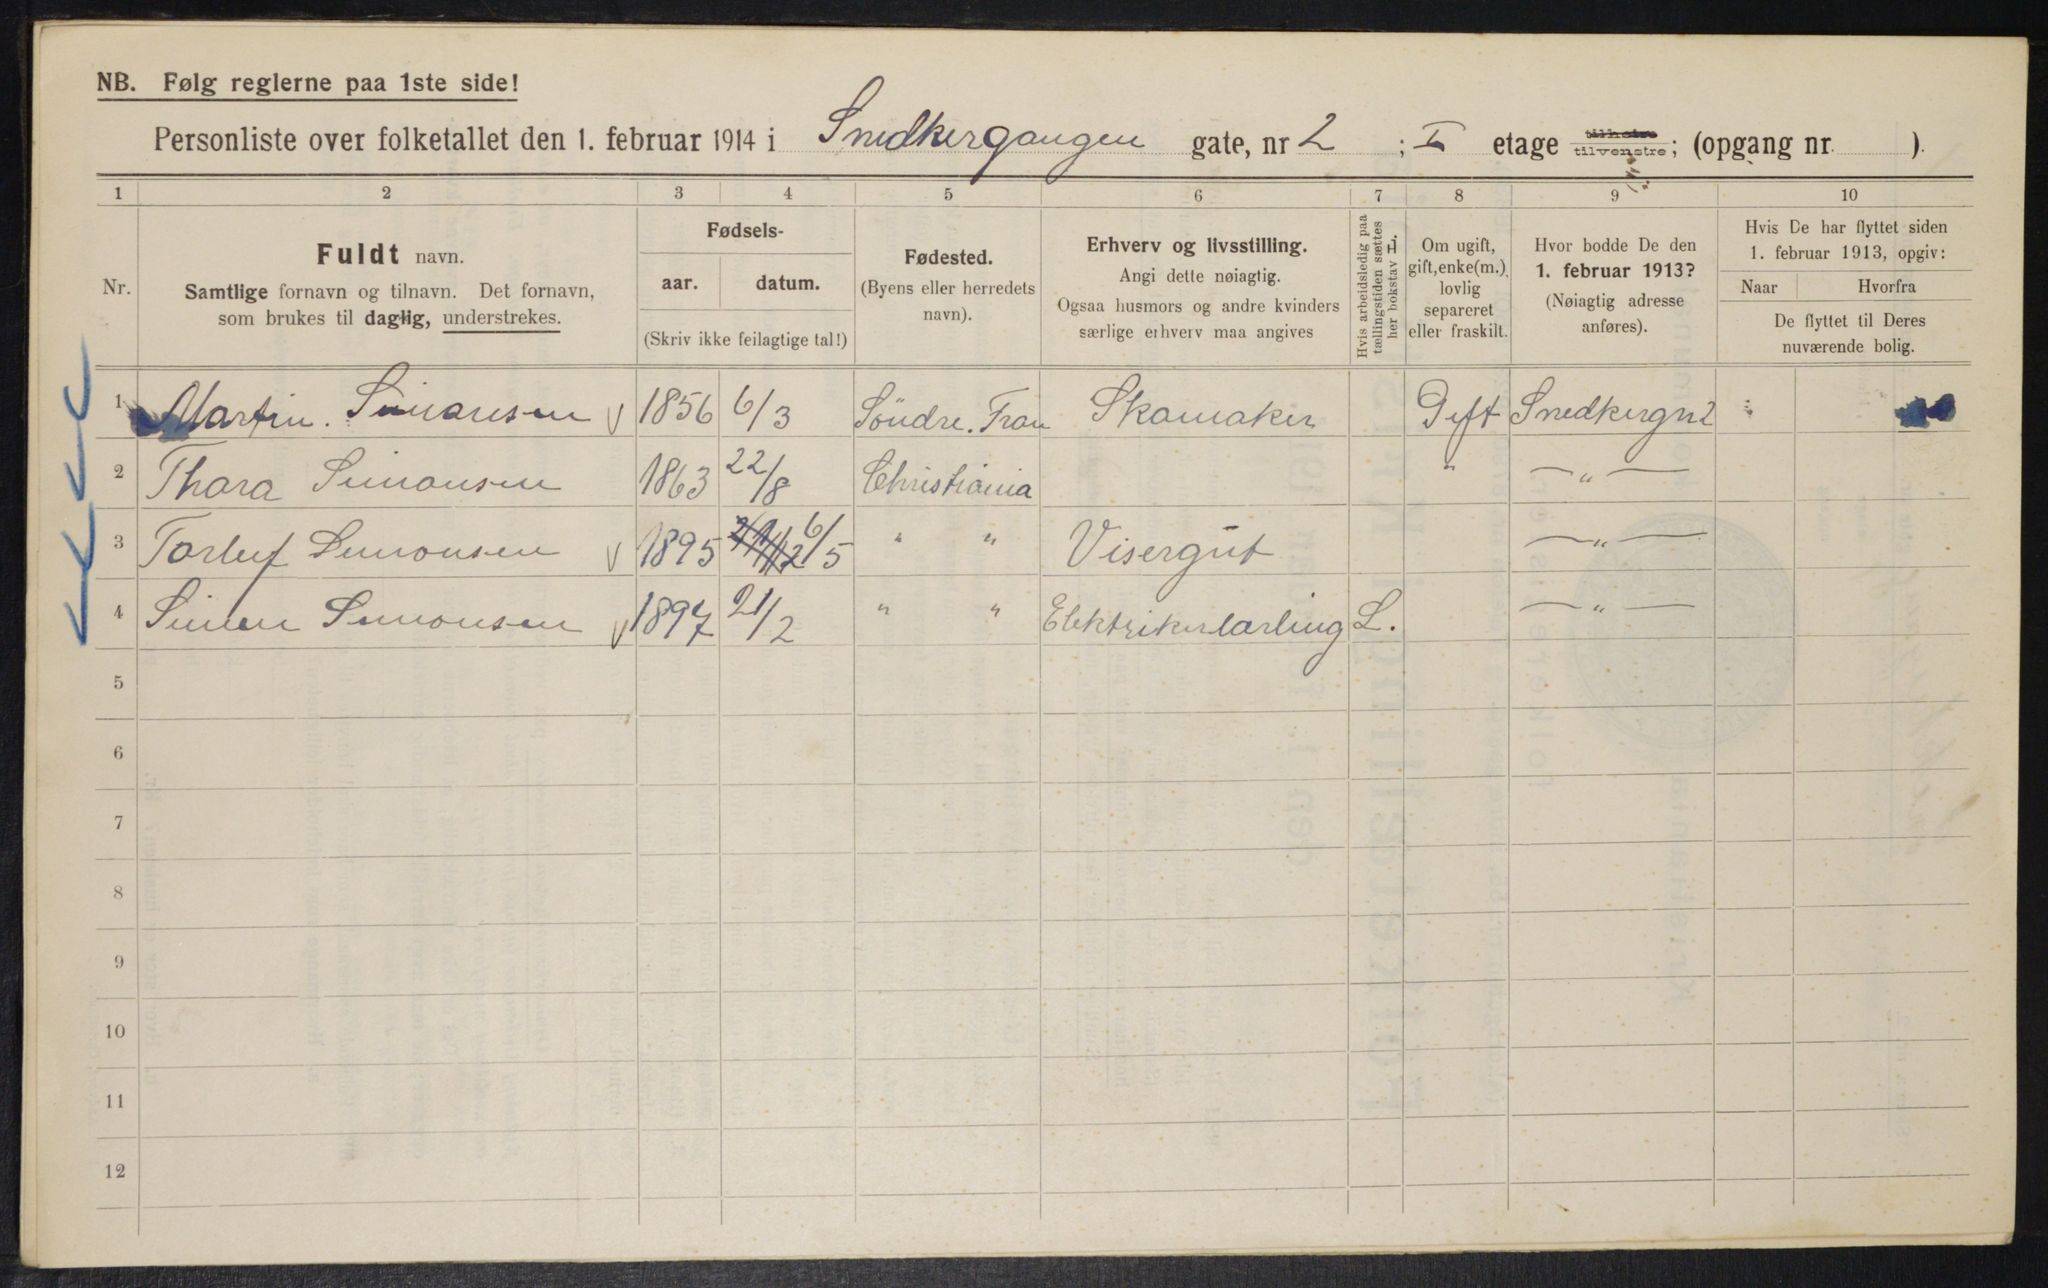 NB. Følg reglerne paa 1ste side!
Personliste over folketallet den 1. februar 1914 i Snedkergangen gate, nr 2 ; I etage tilhøire tilvenstre; (opgang nr. ).
1 2 3 4 5 6 7 8 9 10
Nr.
Fuldt navn.
Samtlige fornavn og tilnavn. Det fornavn,
som brukes til daglig, understrekes.
Fødsels-
aar. datum.
(Skriv ikke feilagtige tal!)
Fødested.
(Byens eller herredets
navn).
Erhverv og livsstilling.
Angi dette nøiagtig.
Ogsaa husmors og andre kvinders
særlige erhverv maa angives
Hvis arbeidsledig paa
tællingstiden sættes
her bokstav L.
Om ugift,
gift, enke(m.),
lovlig
separeret
eller fraskilt.
Hvor bodde De den
1. februar 1913?
(Nøiagtig adresse
anføres).
Hvis De har flyttet siden
1. februar 1913, opgiv:
Naar Hvorfra
De flyttet til Deres
nuværende bolig.
1 Martin. Simonsen 1856 6/3 Söndre. Fron Skomaker Gift Snedkergn 2
2 Thora Simonsen 1863 22/8 Christiania " — " —
3 Torleif Simonsen 1895 6/5 " " Visergut — " —
4 Simen Simonsen 1897 21/2 " " Elektrikerlærling L. — " —
5
6
7
8
9
10
11
12